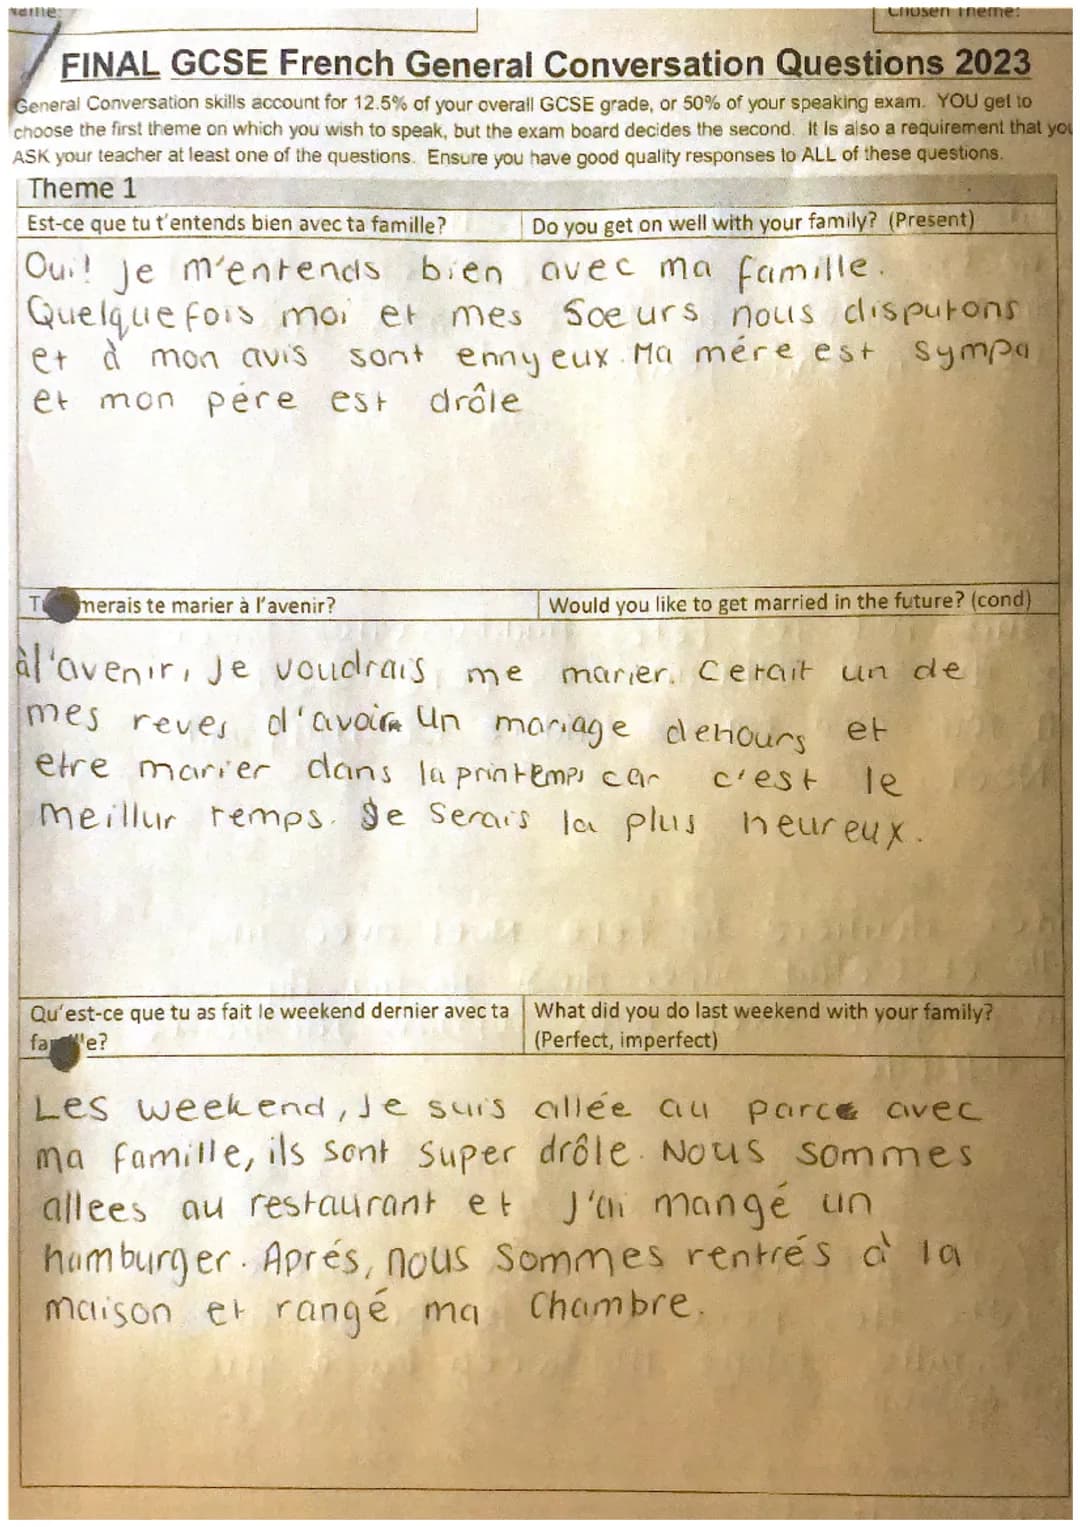 Name:
Chosen Theme:
FINAL GCSE French General Conversation Questions 2023
General Conversation skills account for 12.5% of your overall GCSE grade, or 50% of your speaking exam. YOU get to
choose the first theme on which you wish to speak, but the exam board decides the second. It is also a requirement that you
ASK your teacher at least one of the questions. Ensure you have good quality responses to ALL of these questions.
Theme 1
Est-ce que tu t'entends bien avec ta famille? Do you get on well with your family? (Present)
Oui! je m'entends bien avec ma famille.
Quelquefois moi et mes soeurs nous disputons
et à mon avis sont ennyeux. Ma mére est sympa
et mon pére est drôle
merais te marier à l'avenir? Would you like to get married in the future? (cond)
àl'avenir, Je voudrais me marier. Cerait un de
mes reves d'avoir un mariage dehours et
etre marier dans la printemps car c'est le
meillur temps. Je serais la plus heureux.
Qu'est-ce que tu as fait le weekend dernier avec ta What did you do last weekend with your family?
fa e? (Perfect, imperfect)
Les weekend, Je suis allée au parc avec
ma famille, ils sont super drôle. Nous sommes
allees au restaurant et J'ai mangé un
hamburger. Aprés, nous sommes rentrés à la
maison et rangé ma chambre.